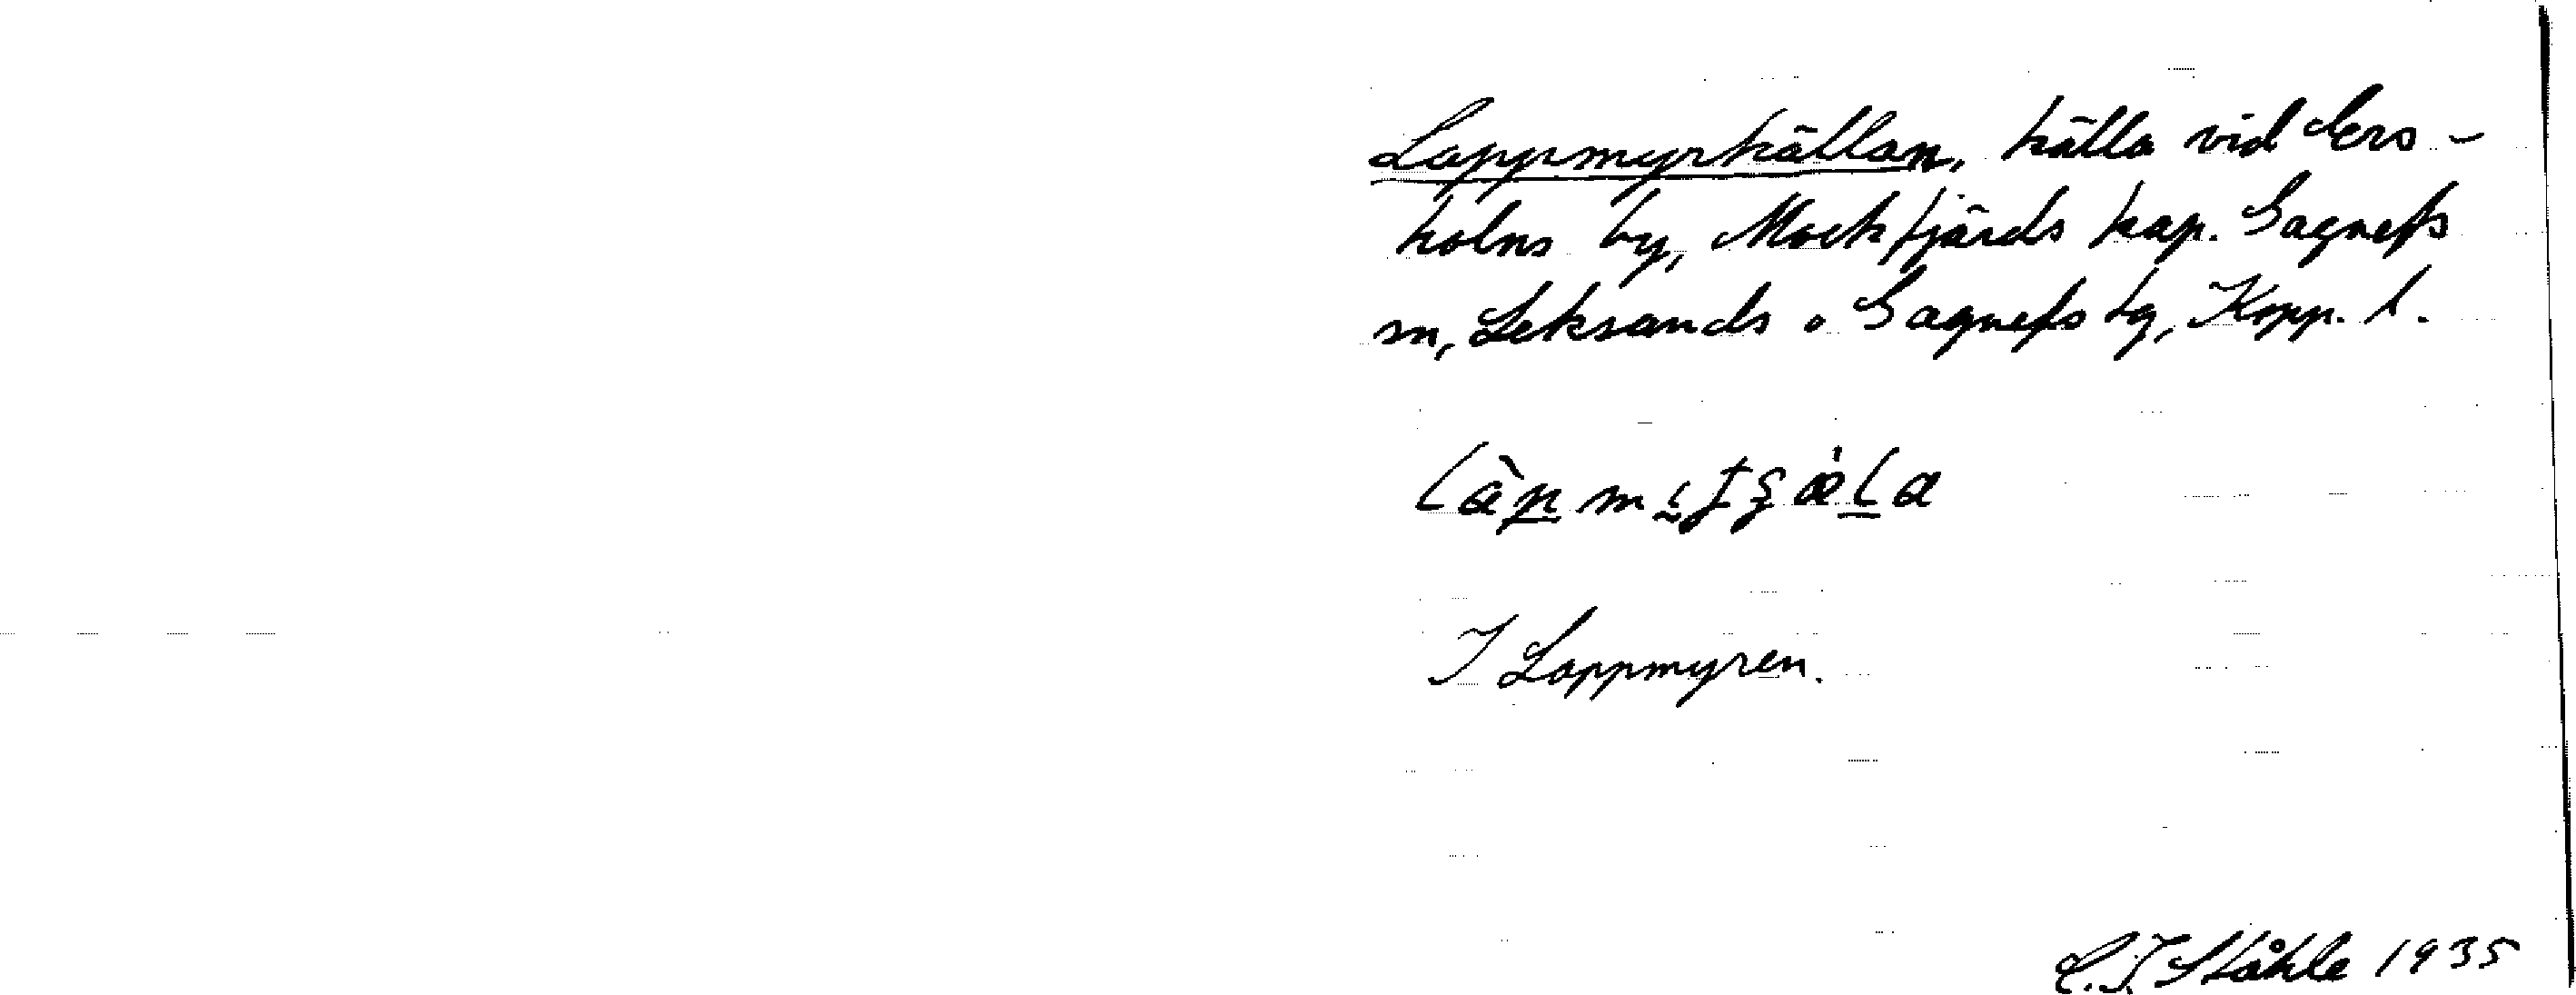 Lappmyrkällan, källa vid Ers-
holns by, Mockfjärds kap. Gagnefs
sn, Leksands o Gagnefs tg, Kopp. l.
I Lappmyren.
C.I. Ståhle 1935